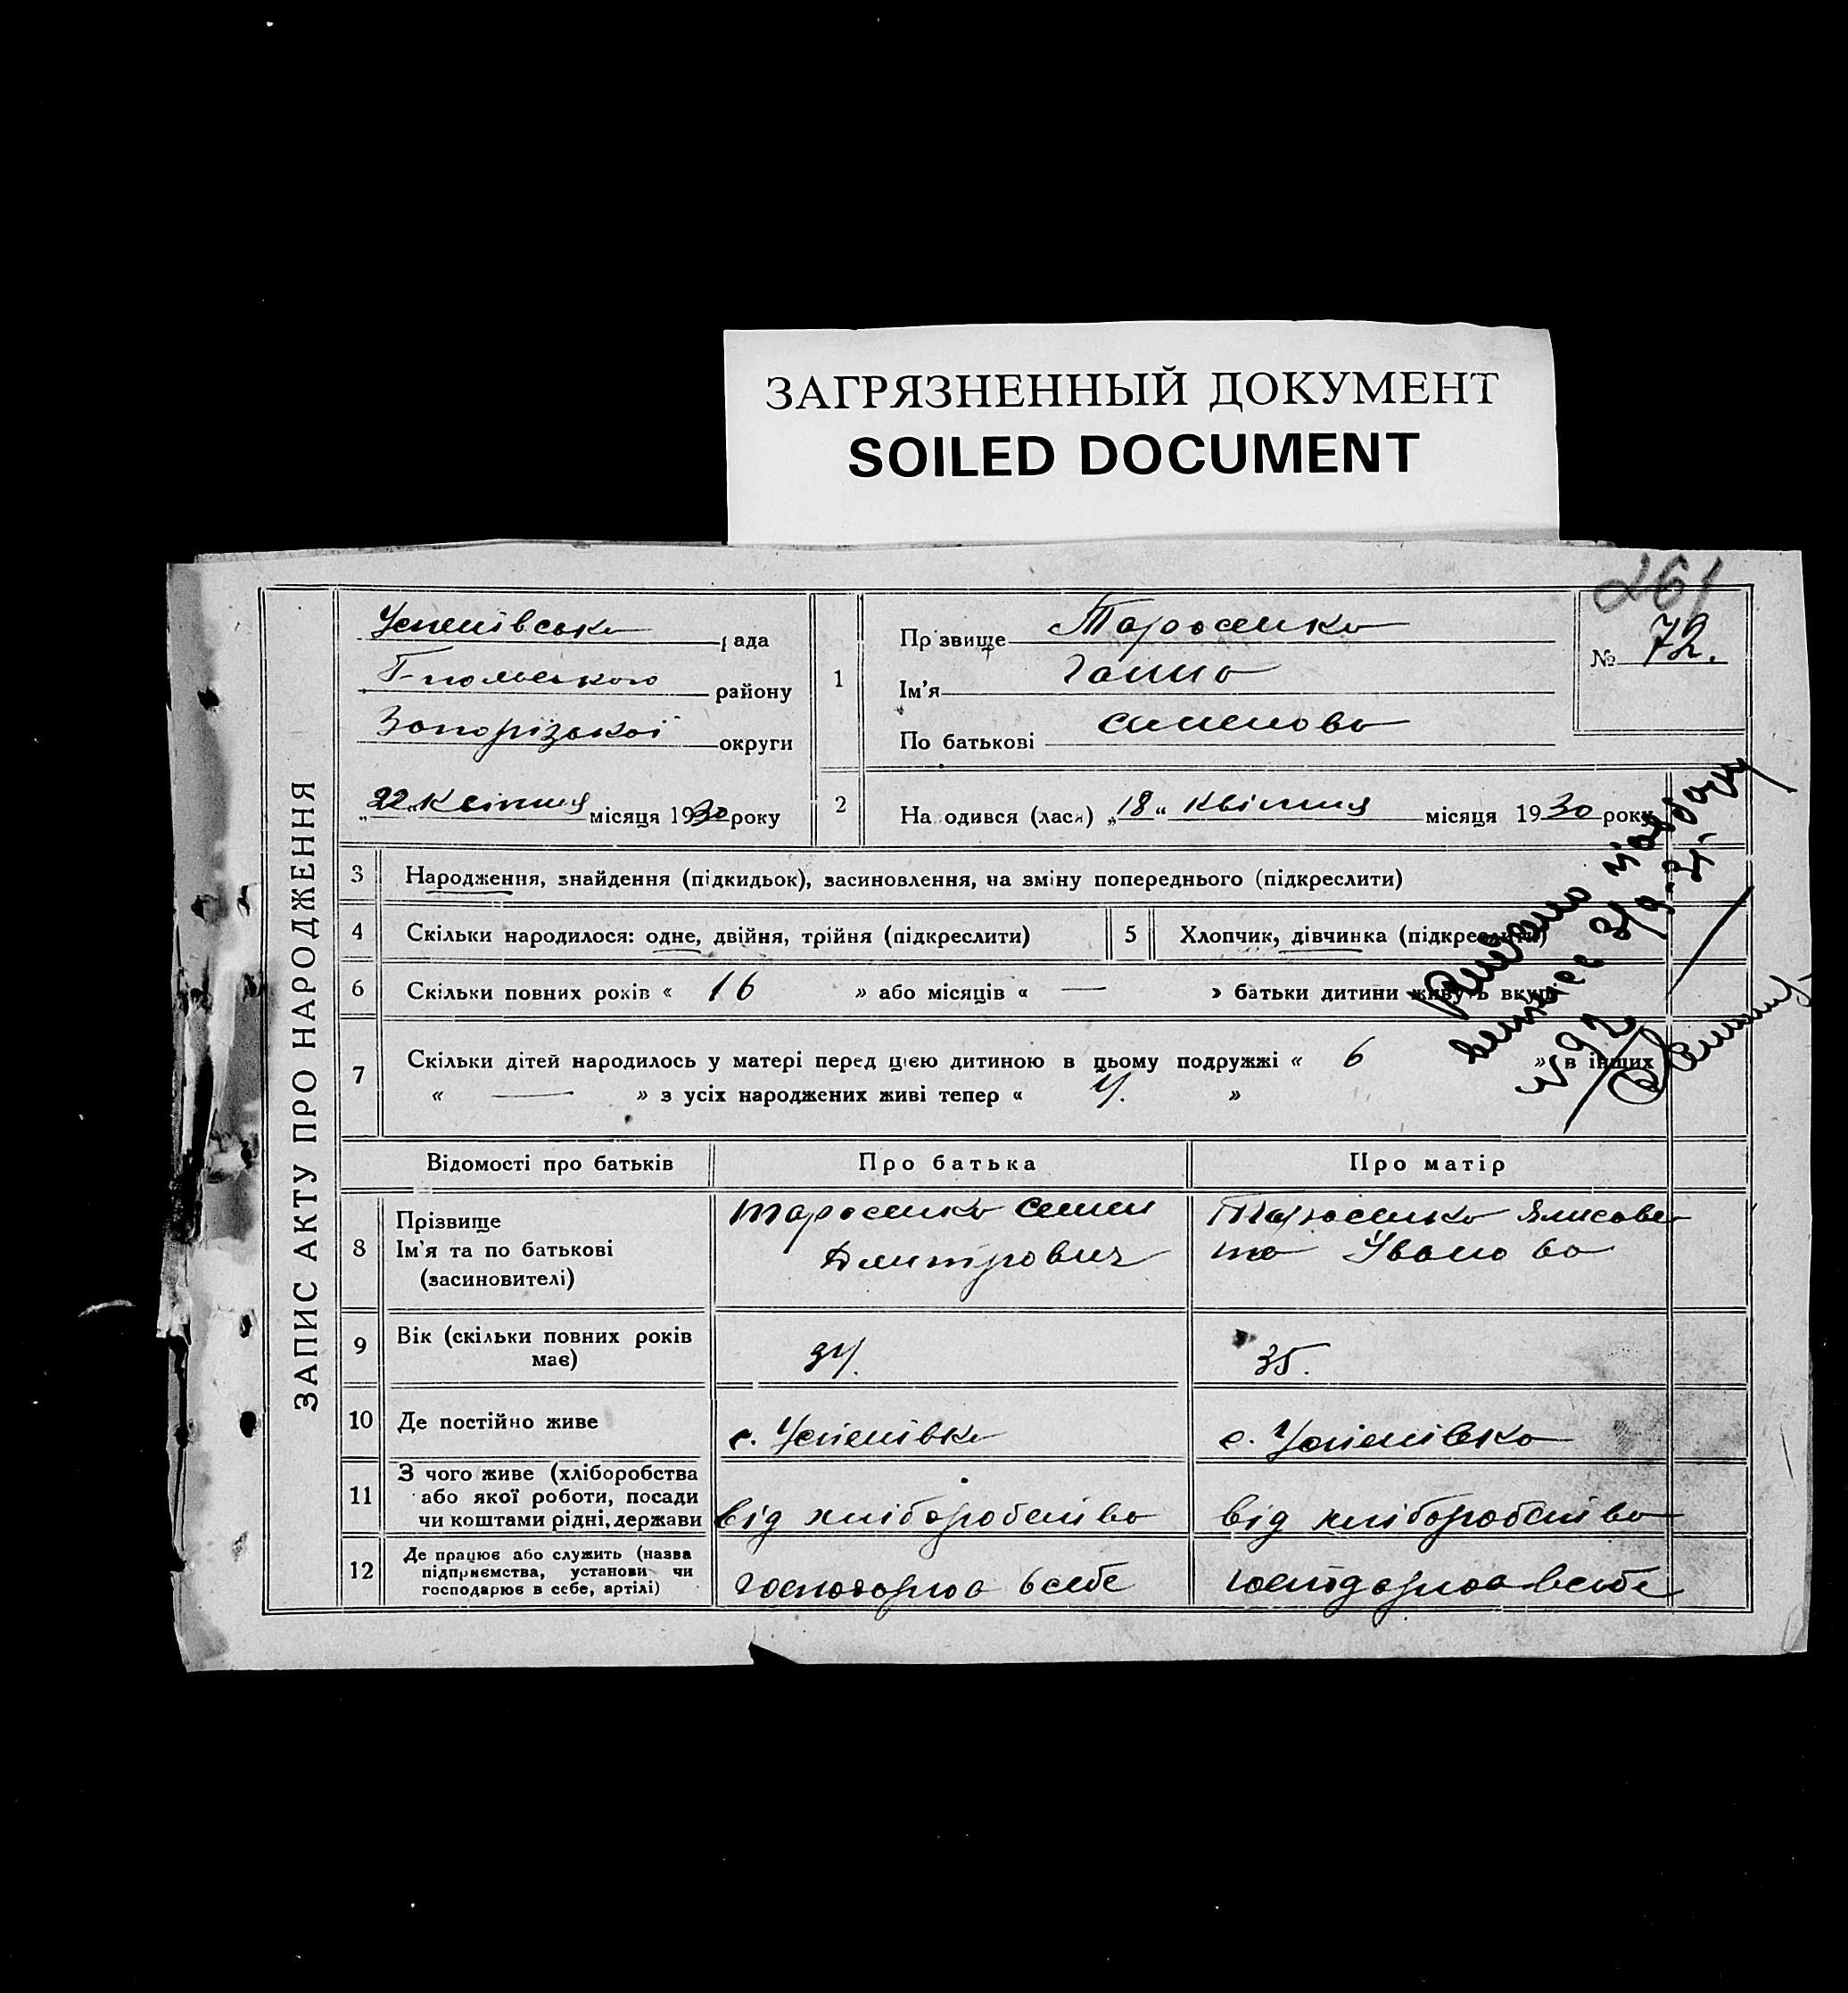 ЗАГРЯЗНЕННЫЙ ДОКУМЕНТ
SOILED DOCUMENT
261
ЗАПИС АКТУ ПРО НАРОДЖЕННЯ
Успенівська рада
району
Запорізької округи
„22“ Квітня місяця 1930 року
1
Прізвище Тарасенко
Ім'я Ганна
По батькові Семенова
№ 72.
2 На одився (лася) „18“ Квітня місяця 1930 року
3 Народження, знайдення (підкидьок), засиновлення, на зміну попереднього (підкреслити)
4 Скільки народилося: одне, двійня, трійня (підкреслити)
5 Хлопчик, дівчинка (підкреслити)
6 Скільки повних років « 16 » або місяців « — » батьки дитини живуть вкупі
7 Скільки дітей народилось у матері перед цією дитиною в цьому подружжі « 6 » в інших
« — » з усіх народжених живі тепер « 4. »
Відомості про батьків Про батька Про матір
8 Прізвище
Ім'я та по батькові
(засиновителі)
Тарасенко Семен
Дмитрович
Тарасенко Єлисове
та Івано ва
9 Вік (скільки повних років
має)
34.
35.
10 Де постійно живе
с. Успенівка
с. Успенівка
11 З чого живе (хліборобства
або якої роботи, посади
чи коштами рідні, держави
від хліборобства
від хліборобства
12 Де працює або служить (назва
підприємства, установи чи
господарює в себе, артілі)
господарюа в себе
господарюа в себе